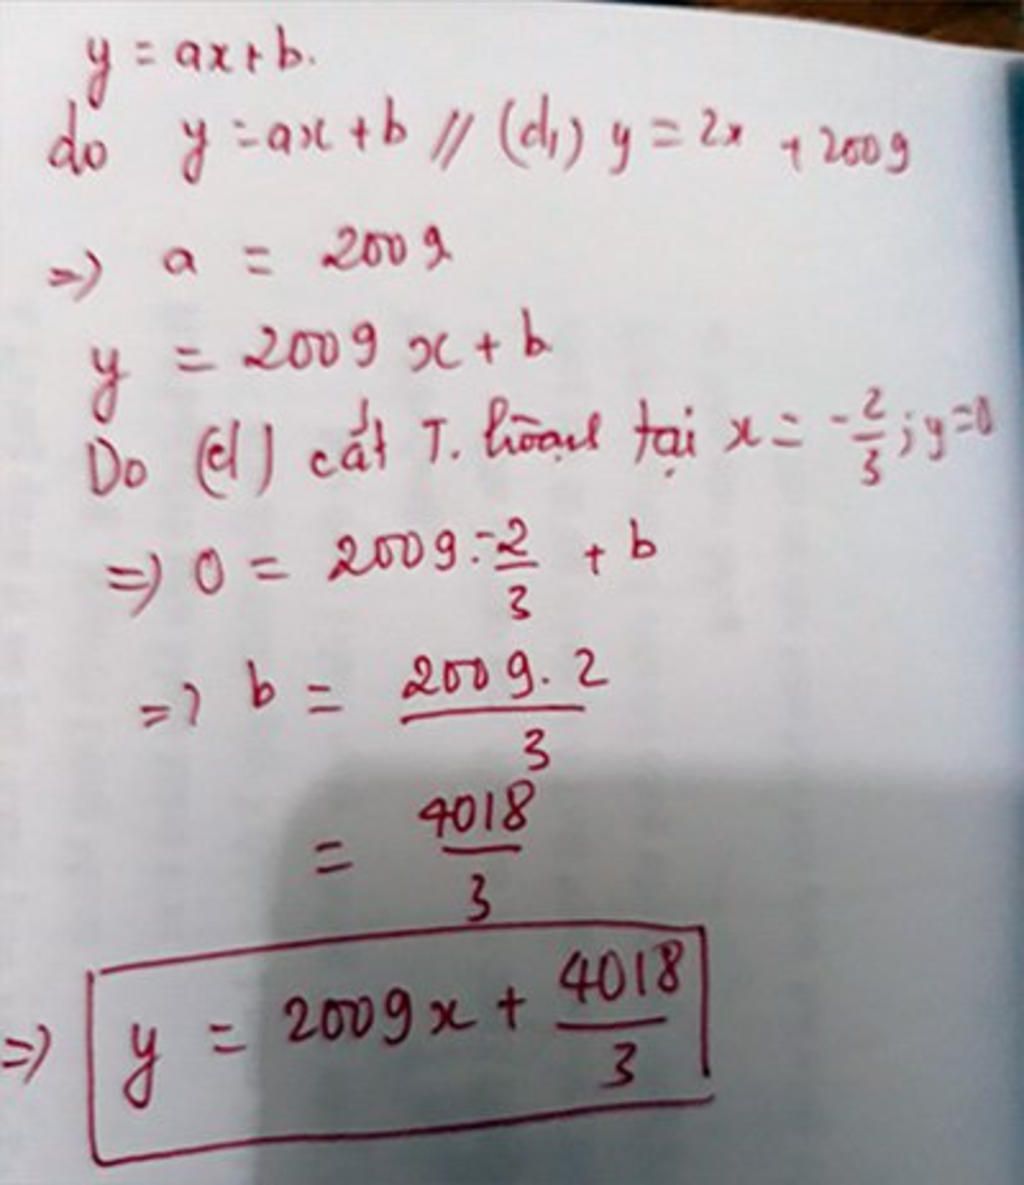 y = ax + b.
do y = ax + b // (d₁) y = 2x + 2009
=> a = 2009
y = 2009 x + b
Do (d) cắt T. hoành tại x = -2/3 ; y = 0
=> 0 = 2009 . -2/3 + b
=> b = 2009. 2 / 3
= 4018/3
=> y = 2009x + 4018/3